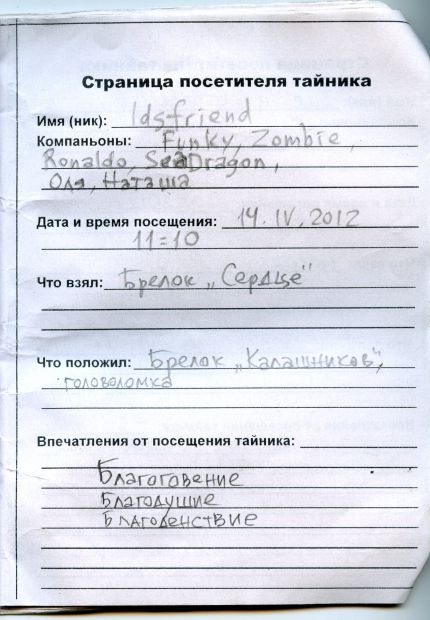 Страница посетителя тайника
Имя (ник): lds-friend
Компаньоны: Funky, Zombie,
Ronaldo, SeaDragon,
Оля, Наташа
Дата и время посещения: 14.IV.2012
11=10
Что взял: Брелок „Сердце"
Что положил: Брелок „Калашников",
головоломка
Впечатления от посещения тайника:
Благоговение
Благодушие
Благоденствие